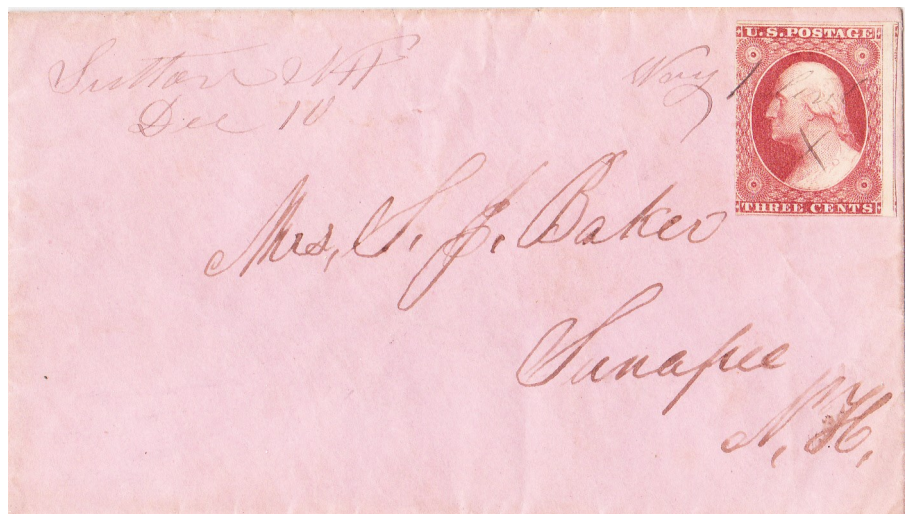 Sutton NH
Dec 10
Way 1 Cent
U.S. POSTAGE
X
THREE CENTS
Mrs, S. J. Baker
Sunapee
N. H.